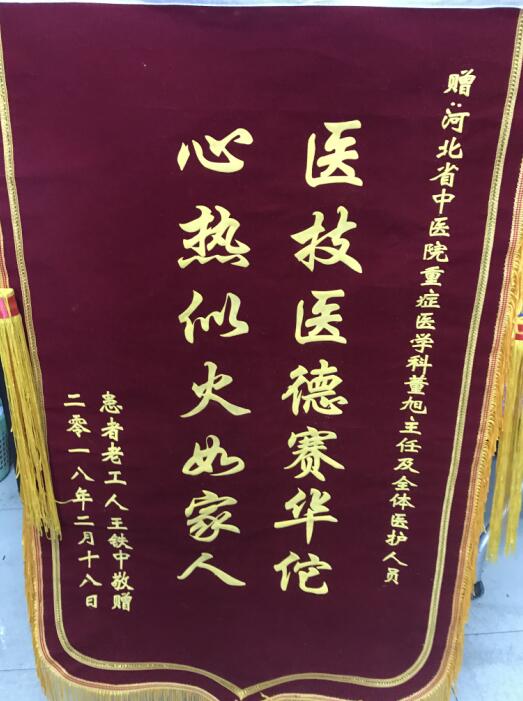 赠:河北省中医院重症医学科董旭主任及全体医护人员
医技医德赛华佗
心热似火如家人
患者老工人王铁中敬赠
二零一八年二月十八日